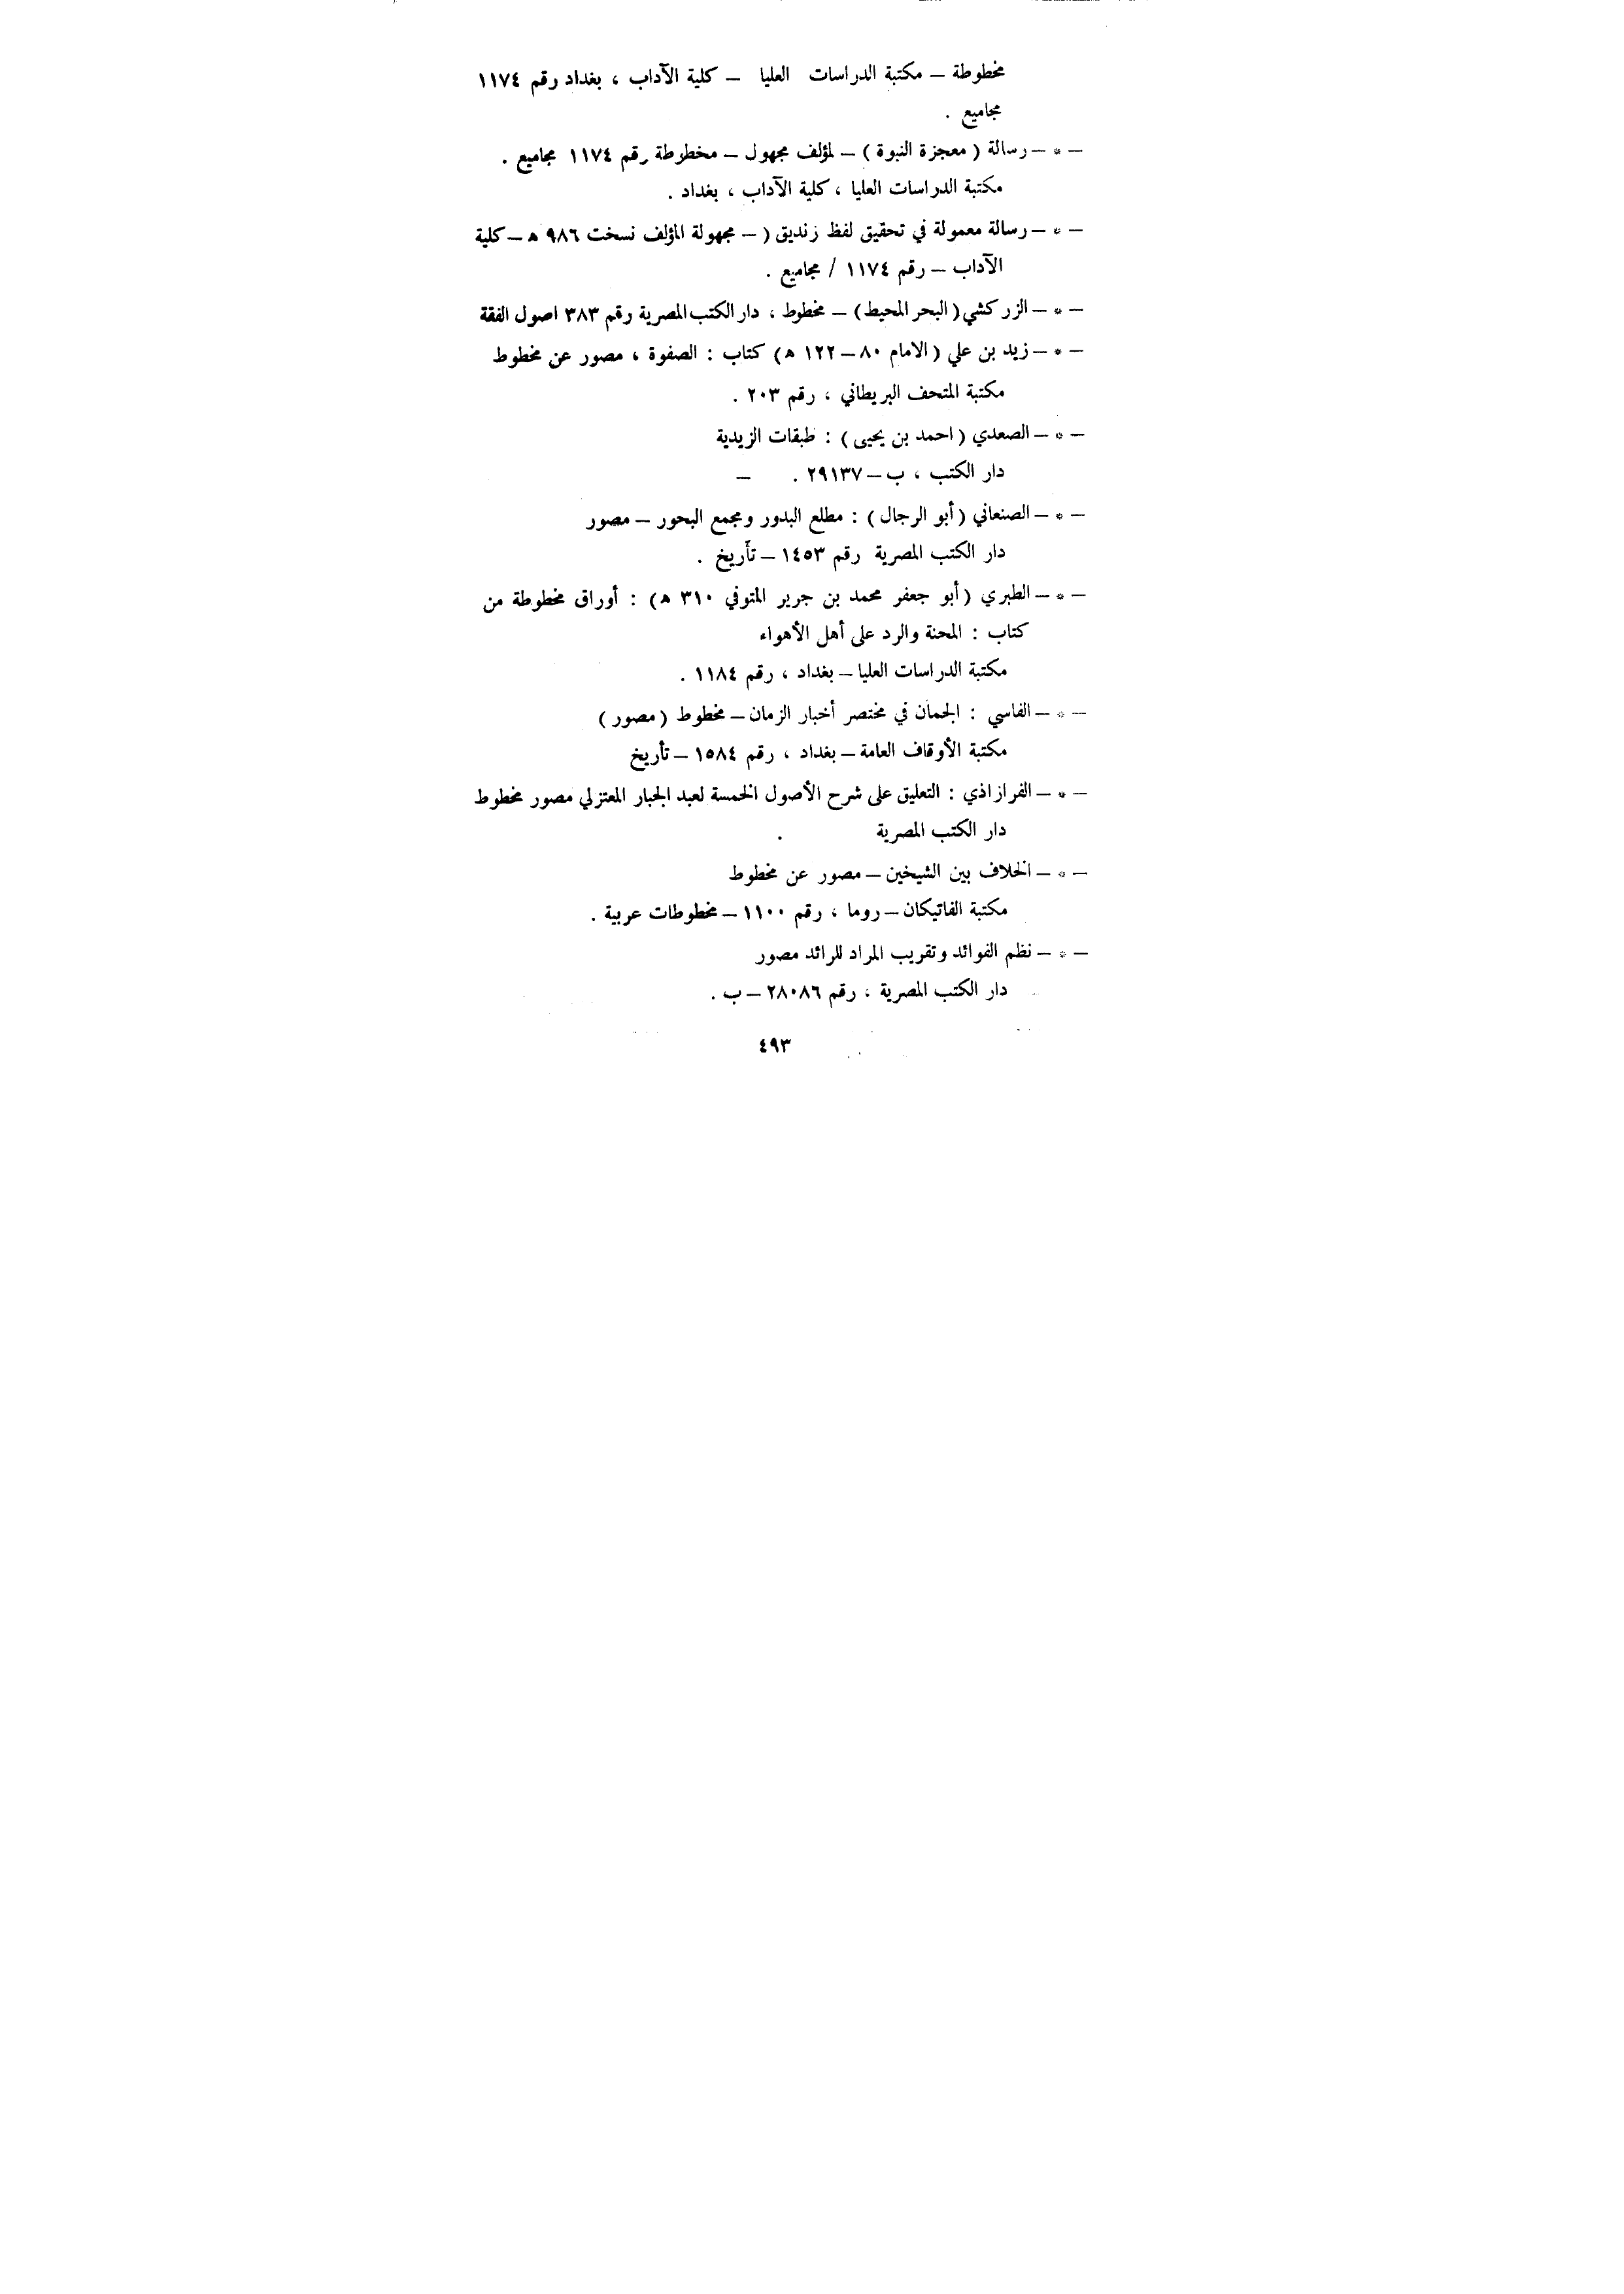 مخطوطة – مكتبة الدراسات العليا – كلية الآداب ، بغداد رقم ١١٧٤
مجاميع .
– * – رسالة ( معجزة النبوة ) – لمؤلف مجهول – مخطوطة رقم ١١٧٤ مجاميع .
مكتبة الدراسات العليا ، كلية الآداب ، بغداد .
– * – رسالة معمولة في تحقيق لفظ زنديق ( – مجهولة المؤلف نسخت ٩٨٦ ه – كلية
الآداب – رقم ١١٧٤ / مجاميع .
– * – الزركشي ( البحر المحيط ) – مخطوط ، دار الكتب المصرية رقم ٣٨٣ اصول الفقة
– * – زيد بن علي ( الامام ٨٠ – ١٢٢ ه ) كتاب : الصفوة ، مصور عن مخطوط
مكتبة المتحف البريطاني ، رقم ٢٠٣ .
– * – الصعدي ( احمد بن يحيى ) : طبقات الزيدية
دار الكتب ، ب – ٢٩١٣٧ . –
– * – الصنعاني ( أبو الرجال ) : مطلع البدور ومجمع البحور – مصور
دار الكتب المصرية رقم ١٤٥٣ – تأريخ .
– * – الطبري ( أبو جعفر محمد بن جرير المتوفي ٣١٠ ه ) : أوراق مخطوطة من
كتاب : المحنة والرد على أهل الأهواء
مكتبة الدراسات العليا – بغداد ، رقم ١١٨٤ .
– * – الفاسي : الجمان في مختصر أخبار الزمان – مخطوط ( مصور )
مكتبة الأوقاف العامة – بغداد ، رقم ١٥٨٤ – تأريخ
– * – الفرازاذي : التعليق على شرح الأصول الخمسة لعبد الجبار المعتزلي مصور مخطوط
دار الكتب المصرية .
– * – الخلاف بين الشيخين – مصور عن مخطوط
مكتبة الفاتيكان – روما ، رقم ١١٠٠ – مخطوطات عربية .
– * – نظم الفوائد وتقريب المراد للرائد مصور
دار الكتب المصرية ، رقم ٢٨٠٨٦ – ب .
٤٩٣